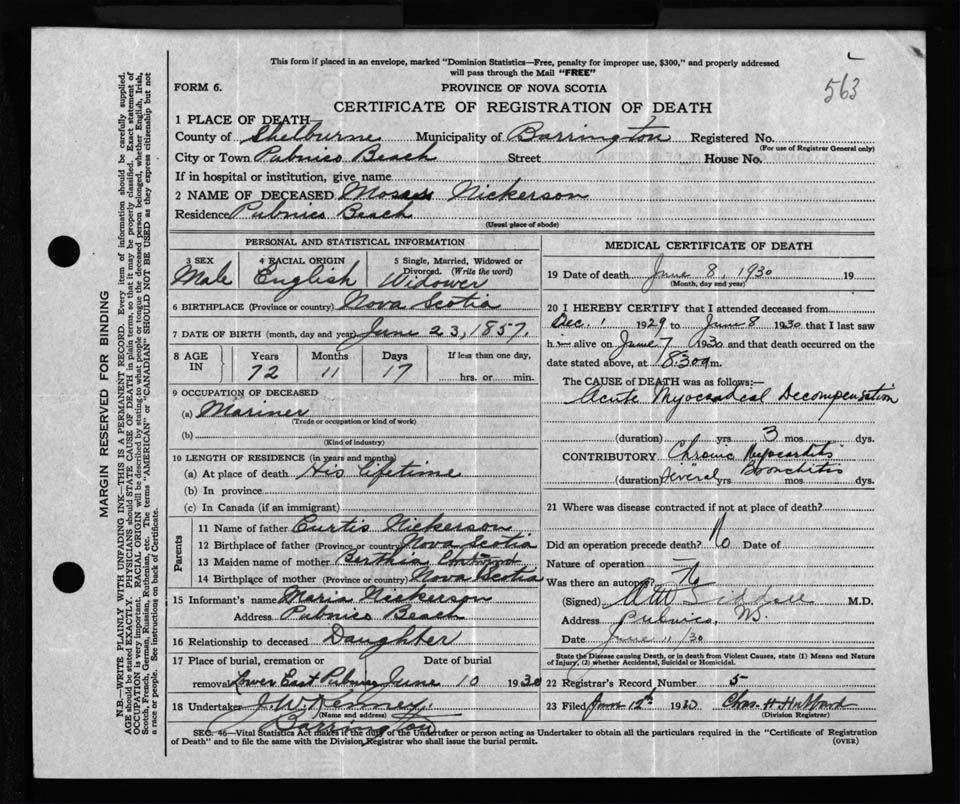 This form if placed in an envelope, marked "Dominion Statistics—Free, penalty for improper use, $300," and properly addressed
will pass through the Mail "FREE"
563
FORM 6.
PROVINCE OF NOVA SCOTIA
CERTIFICATE OF REGISTRATION OF DEATH
1 PLACE OF DEATH
County of Shelburne Municipality of Barrington Registered No.
(For use of Registrar General only)
City or Town Pubnico Beach Street House No.
If in hospital or institution, give name
2 NAME OF DECEASED Moses Nickerson
Residence Pubnico Beach
(Usual place of abode)
PERSONAL AND STATISTICAL INFORMATION
3 SEX
Male
4 RACIAL ORIGIN
English
5 Single, Married, Widowed or
Divorced. (Write the word)
Widower
6 BIRTHPLACE (Province or country) Nova Scotia
7 DATE OF BIRTH (month, day and year) June 23, 1857.
8 AGE IN
Years Months Days If less than one day,
72 11 17 hrs. or min.
9 OCCUPATION OF DECEASED
(a) Mariner
(Trade or occupation or kind of work)
(b)
(Kind of industry)
10 LENGTH OF RESIDENCE (in years and months)
(a) At place of death His lifetime
(b) In province
(c) In Canada (if an immigrant)
Parents
11 Name of father Curtis Nickerson
12 Birthplace of father (Province or country) Nova Scotia
13 Maiden name of mother Berthia
14 Birthplace of mother (Province or country) Nova Scotia
15 Informant's name Maria Nickerson
Address Pubnico Beach
16 Relationship to deceased Daughter
17 Place of burial, cremation or Date of burial
removal Lower East Pubnico June 10 1930
18 Undertaker J. W. Kenney,
(Name and address)
Barrington
MEDICAL CERTIFICATE OF DEATH
19 Date of death June 8, 1930 19
(Month, day and year)
20 I HEREBY CERTIFY that I attended deceased from
Dec. 1 1929 to June 8 1930 that I last saw
h alive on June 7 1930 and that death occurred on the
date stated above, at 8.30 a m.
The CAUSE of DEATH was as follows:—
Acute Myocardial Decompensation
(duration) yrs 3 mos dys.
CONTRIBUTORY Chronic Myocarditis
Bronchitis
(duration) Several yrs mos dys.
21 Where was disease contracted if not at place of death?
Did an operation precede death? No Date of
Nature of operation
Was there an autopsy? No
(Signed) M.D.
Address Pubnico, NS.
Date June 11/30
State the Disease causing Death, or in death from Violent Causes, state (1) Means and Nature
of Injury, (2) whether Accidental, Suicidal or Homicidal.
22 Registrar's Record Number 5
23 Filed June 12th 1930 Chas. H. Hubbard
(Division Registrar)
SEC. 46—Vital Statistics Act makes it the duty of the Undertaker or person acting as Undertaker to obtain all the particulars required in the "Certificate of Registration
of Death" and to file the same with the Division Registrar who shall issue the burial permit.
(OVER)
MARGIN RESERVED FOR BINDING
N.B.—WRITE PLAINLY WITH UNFADING INK—THIS IS A PERMANENT RECORD. Every item of information should be carefully supplied.
AGE should be stated EXACTLY. PHYSICIANS should STATE CAUSE OF DEATH in plain terms, so that it may be properly classified. Exact statement of
OCCUPATION is very important. RACIAL ORIGIN will be described by stating to what people or tongue the deceased person belonged, whether English, Irish,
Scotch, French, German, Russian, Ruthenian, etc. The terms "AMERICAN" or "CANADIAN" SHOULD NOT BE USED as they express citizenship but not
a race or people. See instructions on back of Certificate.